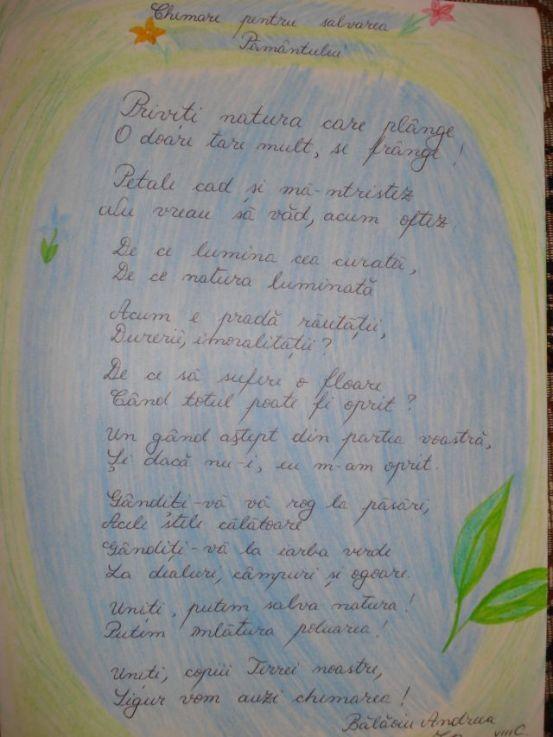 Chemare pentru salvarea
Pământului
Priviți natura care plânge
O doare tare mult, se frânge!
Petale cad și mă-ntristez
Nu vreau să văd, acum oftez
De ce lumina cea curată,
De ce natura luminată
Acum e pradă răutății,
Durerii, imoralității?
De ce să sufere o floare
Când totul poate fi oprit?
Un gând aștept din partea voastră,
Și dacă nu-i, eu m-am oprit.
Gândiți-vă vă rog la păsări,
Acele stele călătoare
Gândiți-vă la iarba verde
La dealuri, câmpuri și ogoare.
Uniți, putem salva natura!
Putem înlătura poluarea!
Uniți, copiii Terrei noastre,
Sigur vom auzi chemarea!
Bălăoiu Andreea
VIII C